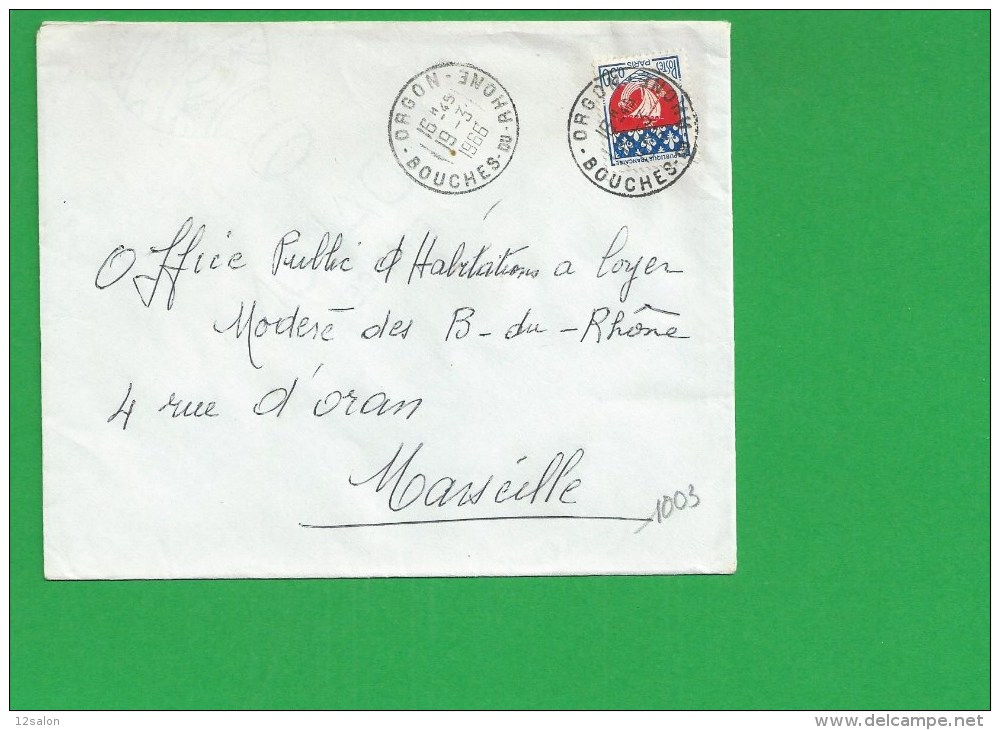 ORGON - BOUCHES-DU-RHONE
16 H - 45
19 - 3
1966
POSTES
PARIS
0,30
REPUBLIQUE FRANCAISE
ORGON
BOUCHES-
Office Public d'Habitations a loyer
Moderé des B-du-Rhône
4 rue d'oran
Marseille
1003
12salon
delcampe.net